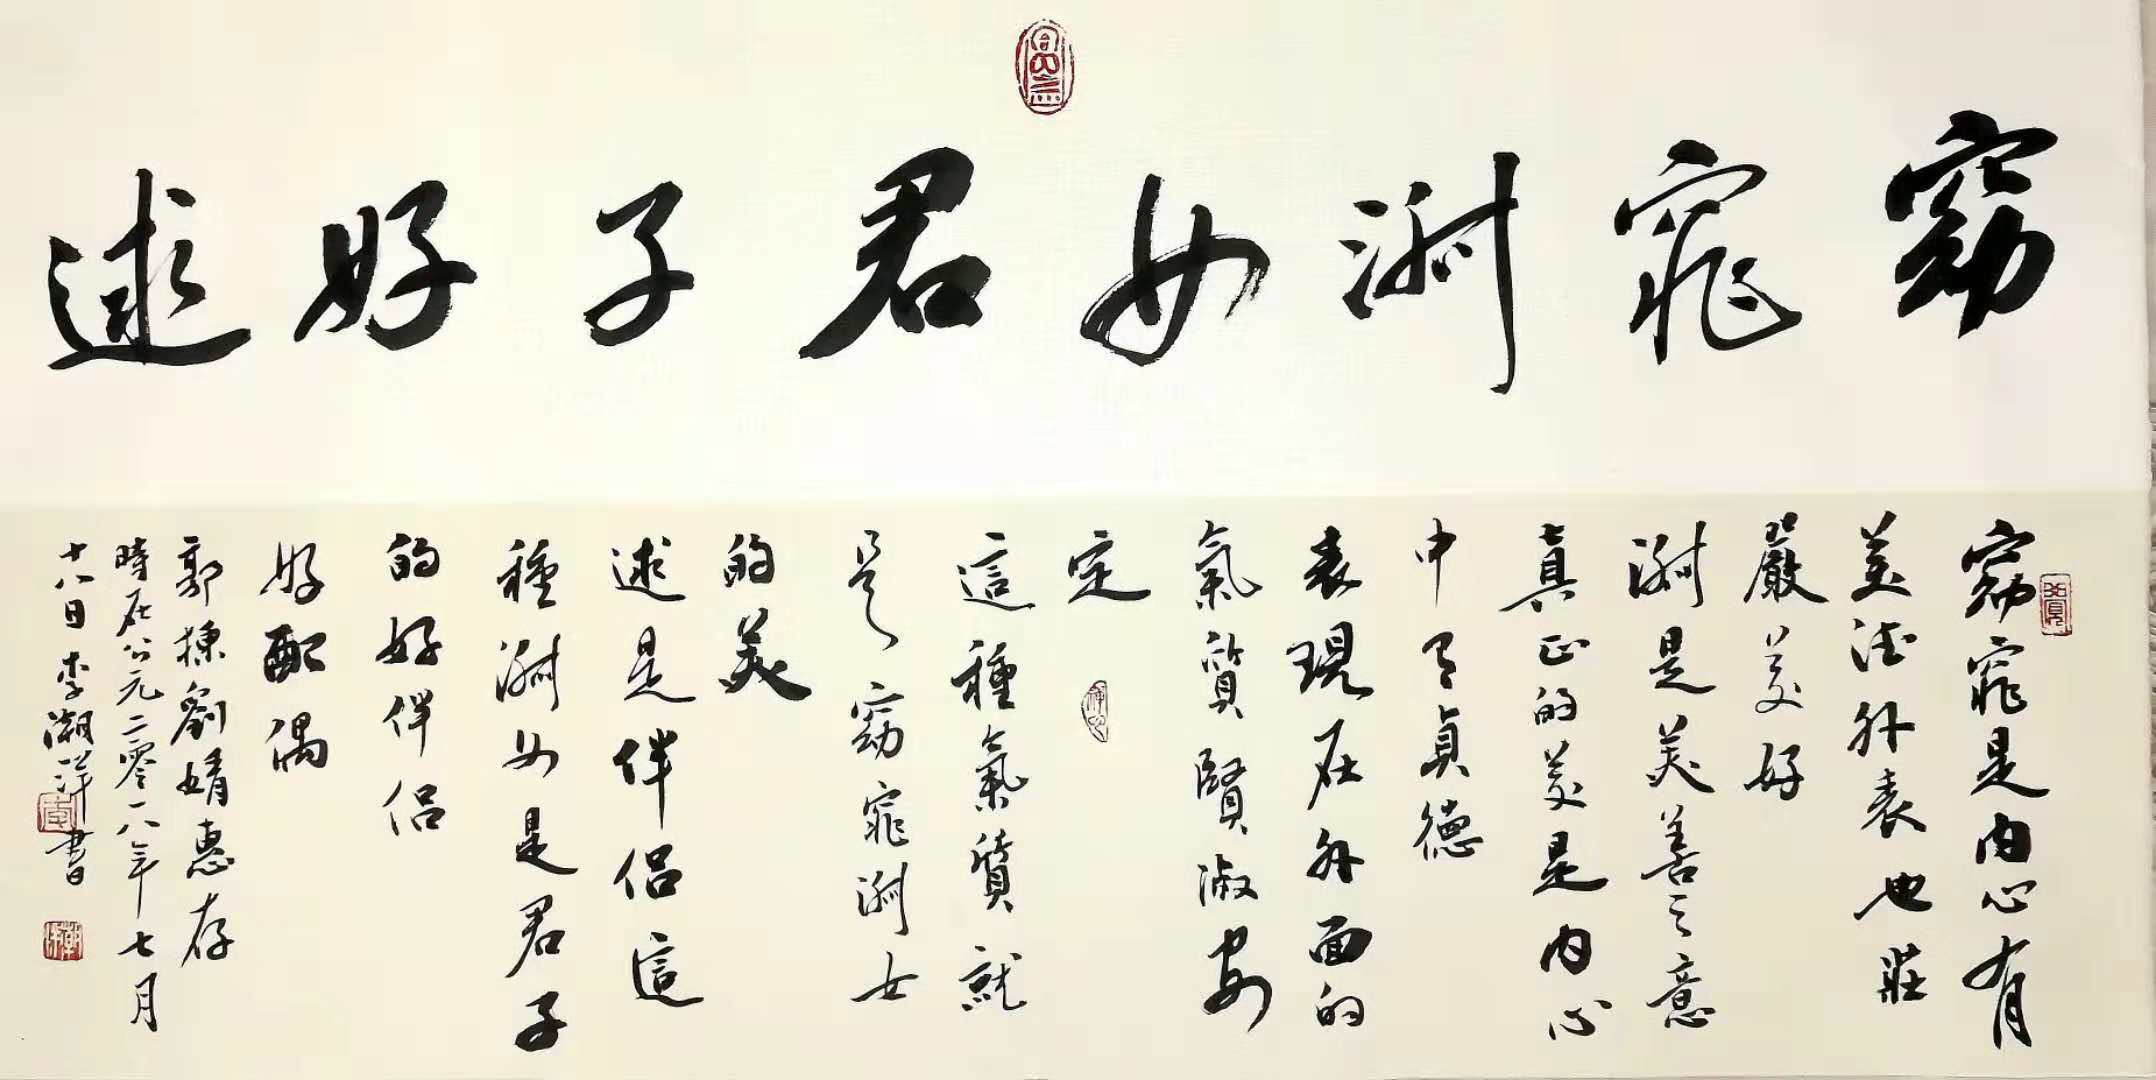 窈窕淑女君子好逑
窈窕是内心有
美德外表也莊
嚴美好
淑是美善之意
真正的美是内心
中有貞德
表現在外面的
氣質賢淑安
定
這種氣質就
是窈窕淑女
的美
逑是伴侣這
種淑女是君子
的好伴侣
好配偶
郭棟劉婧惠存
時在公元二零一八年七月
十八日李潮洋書